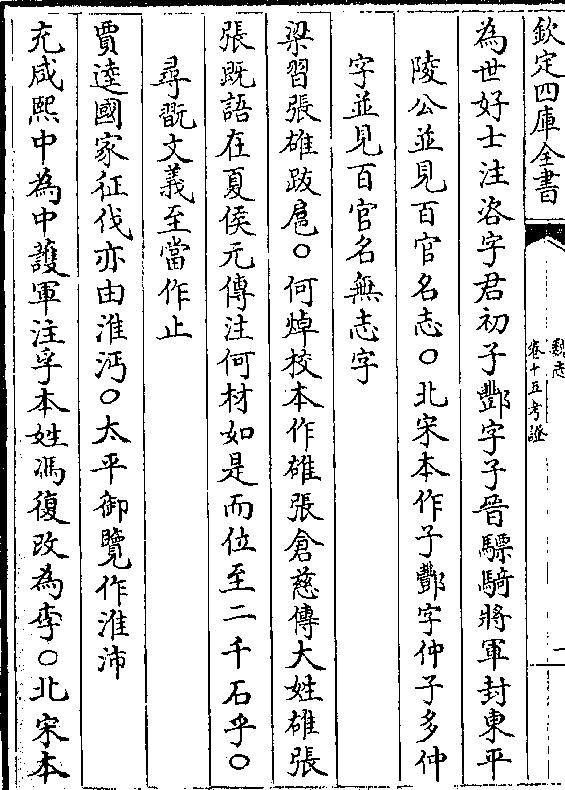 欽定四庫全書
魏志
卷十五考證
一
為世好士注洛字君初子酆字子晉驃騎將軍封東平
陵公並見百官名志○北宋本作子酆字仲子多仲
字並見百官名無志字
梁習張雄跋扈○何焯校本作雄張倉慈傳大姓雄張
張既語在夏侯元傳注何材如是而位至二千石乎○
尋翫文義至當作止
賈逵國家征伐亦由淮沔○太平御覽作淮沛
充咸熙中為中護軍注孚本姓馮復改為李○北宋本